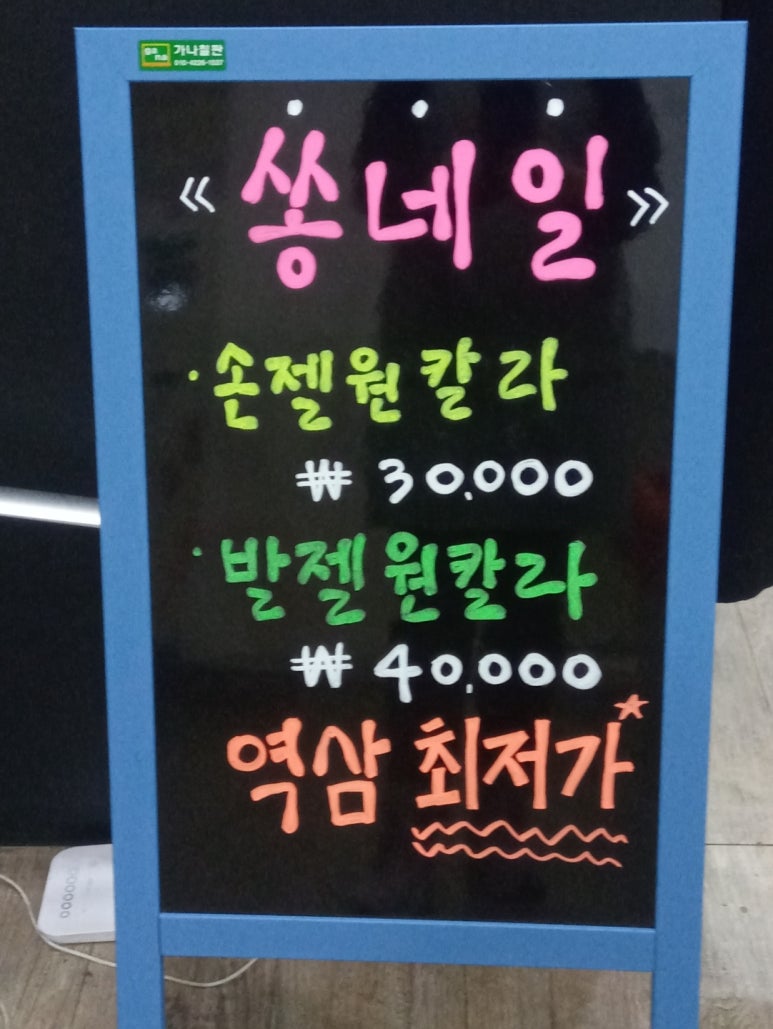 gana 가나칠판
010-4226-1537
《 쏭네일 》
· 손젤원칼라
₩ 30,000
· 발젤원칼라
₩ 40,000
역삼 최저가